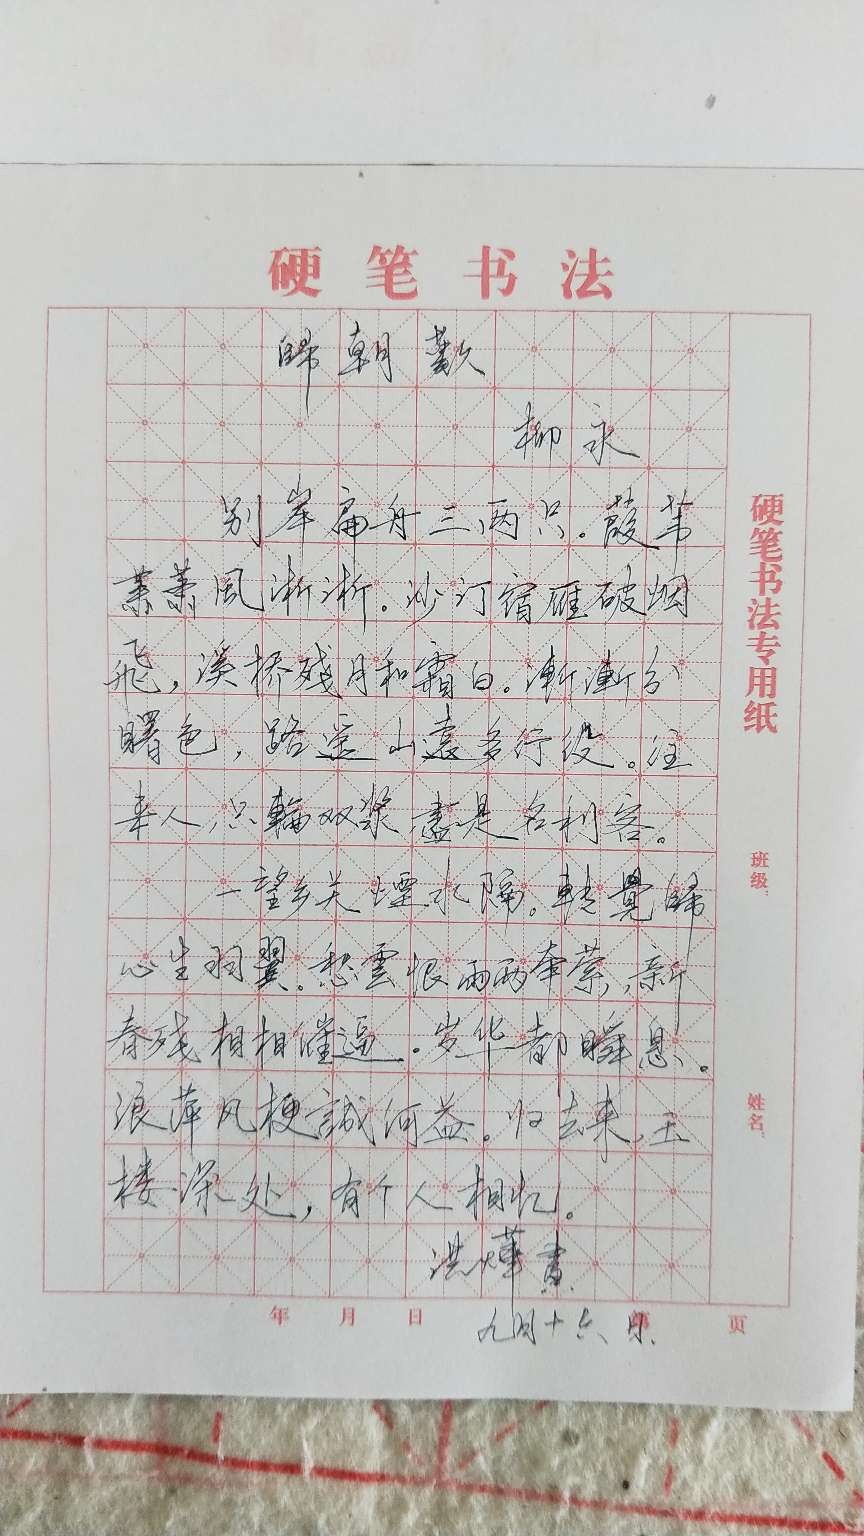 硬笔书法
歸朝歡
柳永
别岸扁舟三两只。葭苇
萧萧風淅淅。沙汀宿雁破烟
飛，溪桥残月和霜白。漸漸分
曙色，路遥山遠多行役。往
来人，只輪双桨，盡是名利客。
一望乡关煙水隔。轉覺歸
心生羽翼。愁雲恨雨兩牵萦，新
春残相相催逼。岁华都瞬息。
浪萍风梗誠何益。归去来，玉
楼深处，有个人相忆。
洪燁書
九月十六日.
年 月 日 第 页
硬笔书法专用纸
班级：
姓名：